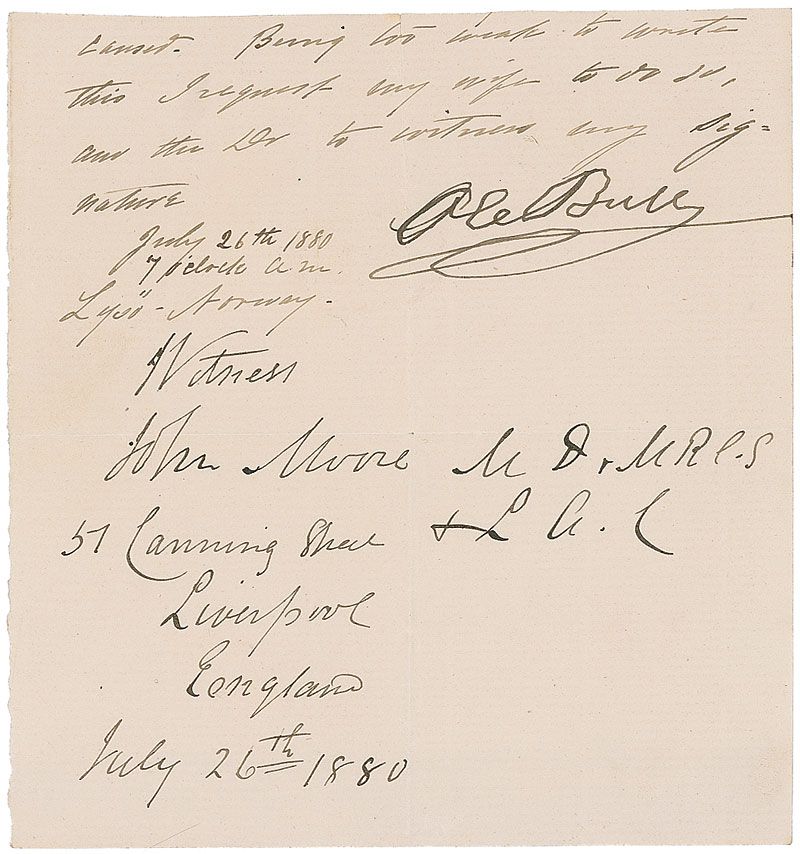 caused. Being too weak to write
this I request my wife to do so,
and the Dr to witness my sig=
nature
Ole Bull
July 26th 1880
7 o'clock a.m.
Lysö - Norway.
Witness
John Moore M D, M R C. S
& L A. C
57 Canning Street
Liverpool
England
July 26th 1880